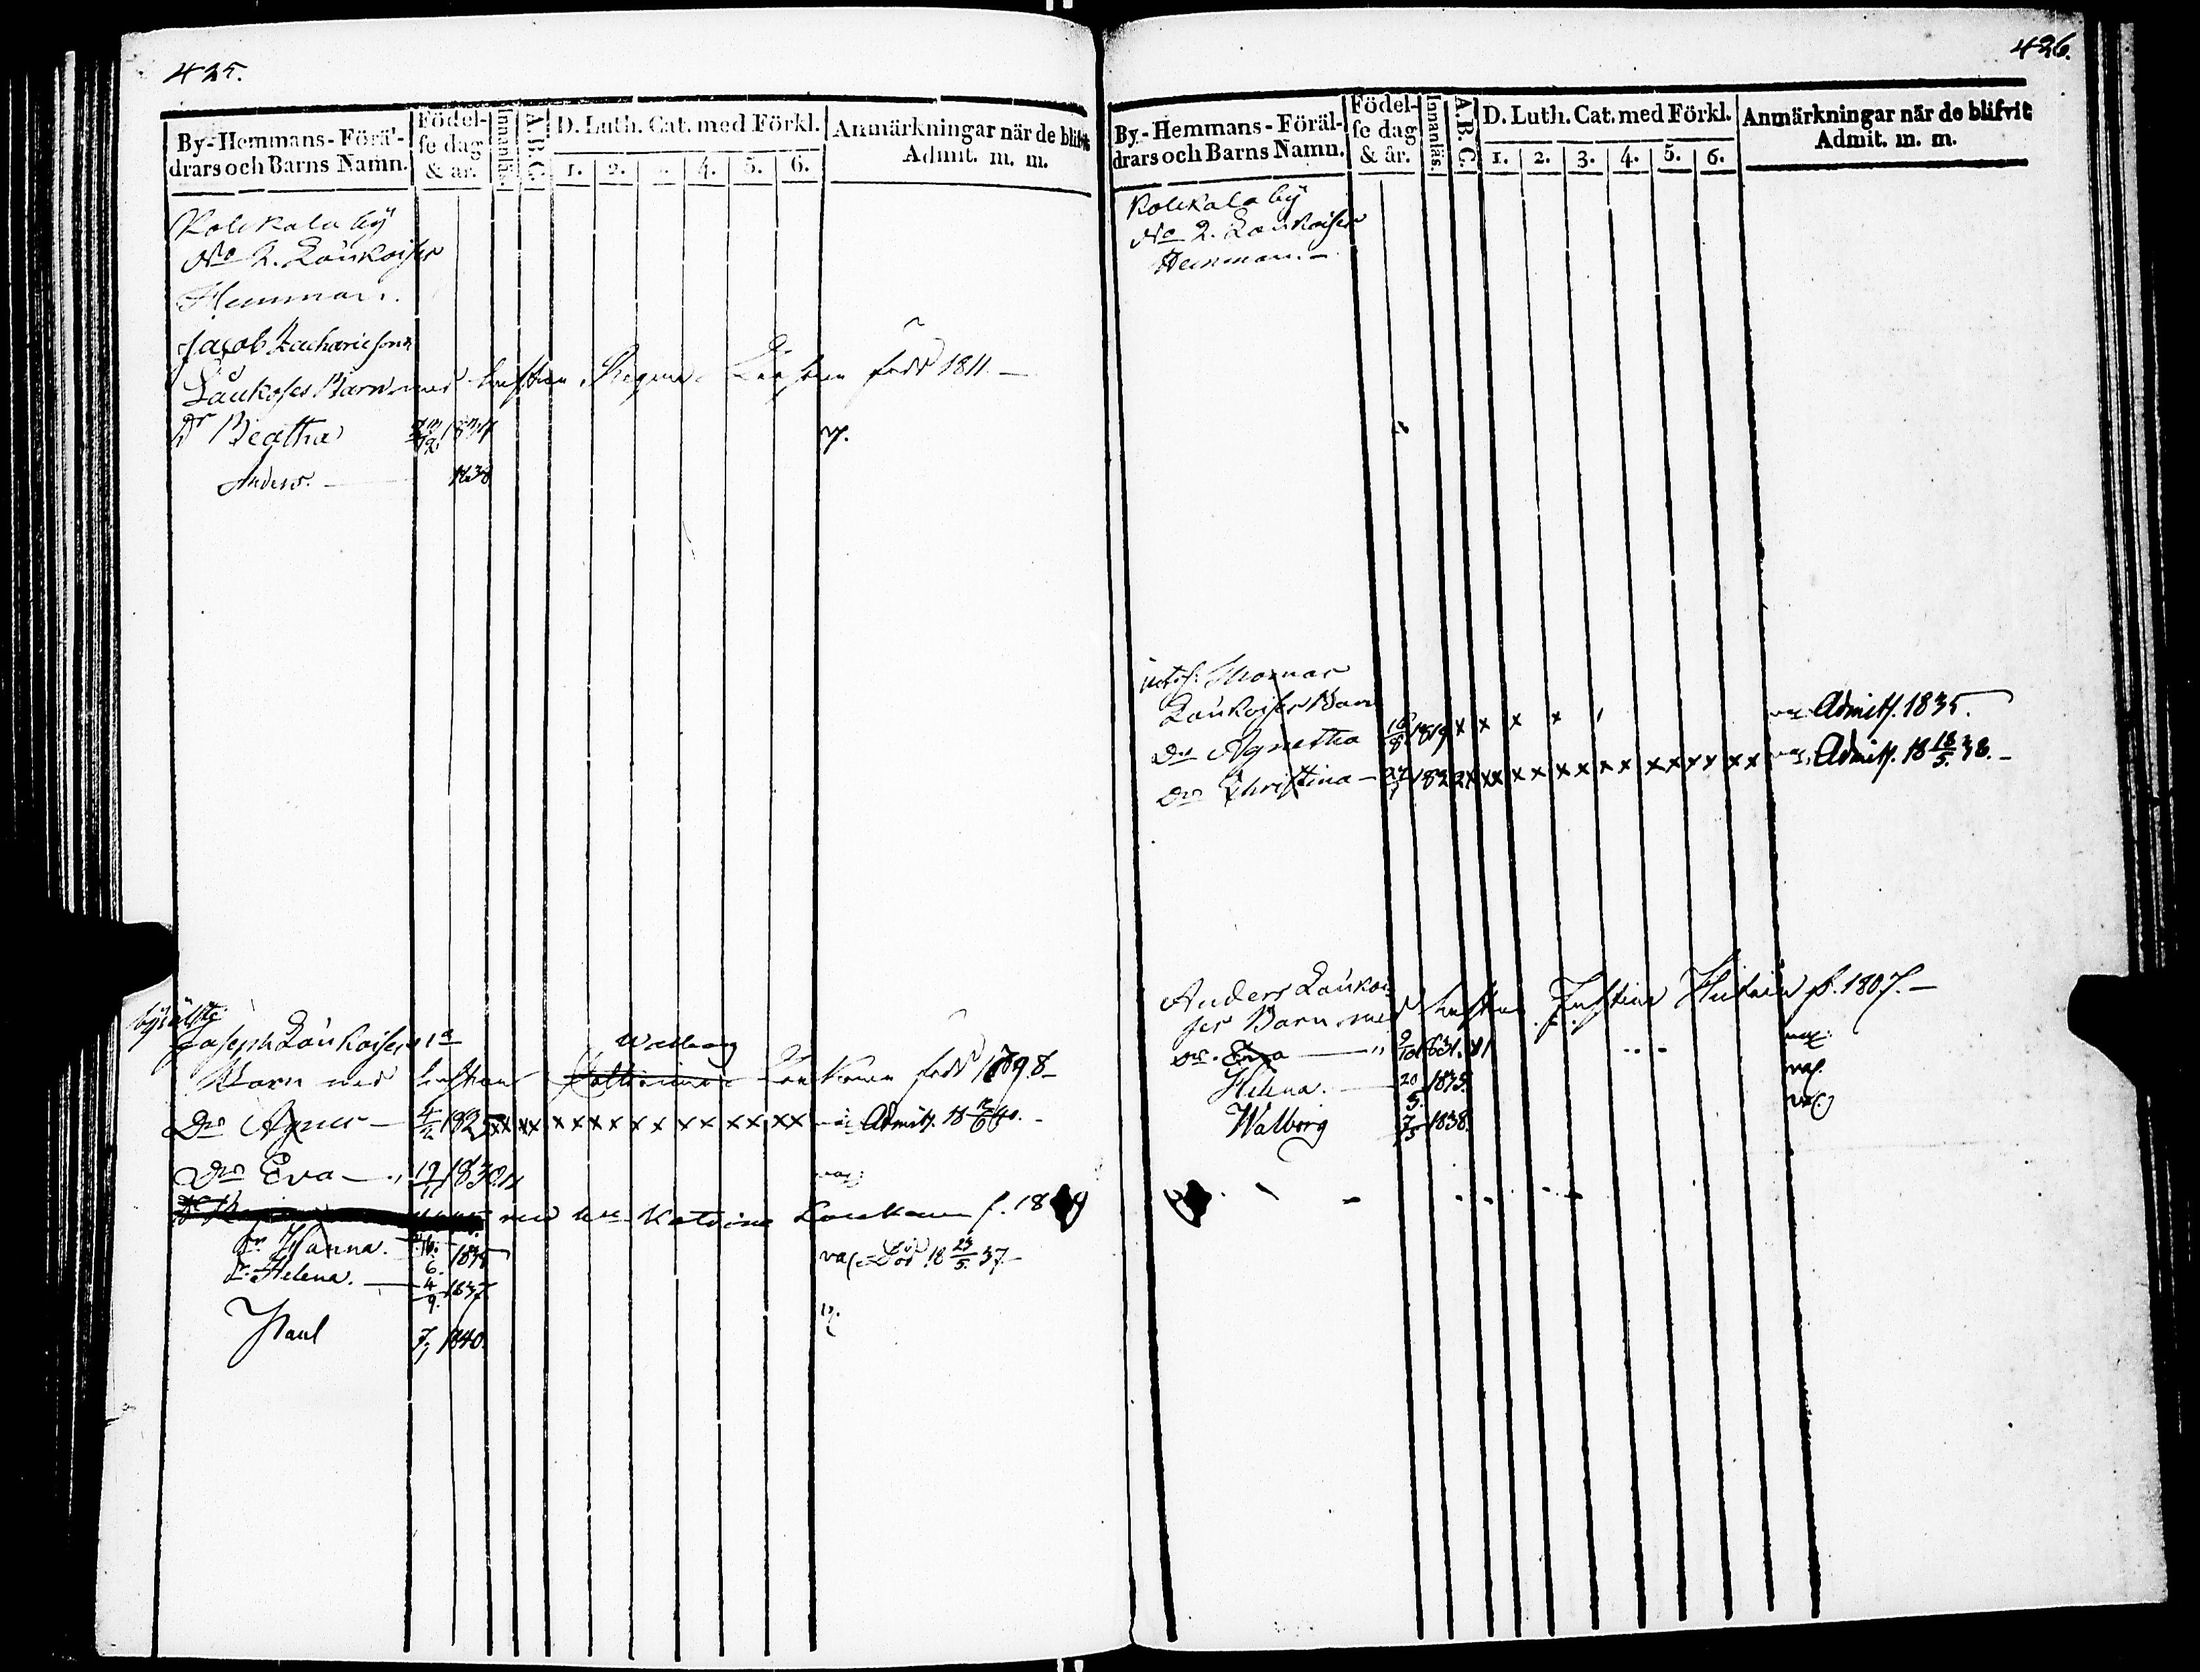 425.
By-Hemmans-Föräl-
drars och Barns Namn.
Födel-
se dag
& år.
Innanläs.
A.B.C.
D. Luth. Cat. med Förkl.
1. 2. 3. 4. 5. 6.
Anmärkningar när de blifvit
Admit. m. m.
Kolikala by
No 2. Laukoises
Hemman.
Jacob Zachariesons
Laukoses Barn med hustrun Regina född 1811. —
Dr Beatha 1834 v.
Anders. — 1838
Joseph Laukaisens
Walborg
Barn med hustrun Catharina född 1798 —
Dr Agnes — 4/2 1825 x x x x x x x x x x x x x x x x Admitt. 18 40. -
Dr Eva — 19/1 1830. x vac:
med hu Katrina f. 18 9
Dr Hanna. 16/6. 1835 vac. Död 18 23/5. 37. —
Dr Helena. — 4/9. 1837 v.
Paul 7/7 1840.
426.
By-Hemmans-Föräl-
drars och Barns Namn.
Födel-
se dag
& år.
Innanläs.
A.B.C.
D. Luth. Cat. med Förkl.
1. 2. 3. 4. 5. 6.
Anmärkningar när de blifvit
Admit. m. m.
Kolikala by
No 2. Laukoises
Hemman. —
Thomas
Laukoises Barn
Dr Agnetha 16/8 1819 x x x x , Admitt. 1835.
Dr Christina — 27/1 1822 x x x x x x x x x x x x x x x Admitt. 18 18/5. 38. -
Anders Laukoi-
ses Barn med hustrun Justina f. 1807. —
Dr. Eva — 9/10 1831. vac.
Helena. — 20/5. 1835. vac.
Walborg 7/5 1838. vac.